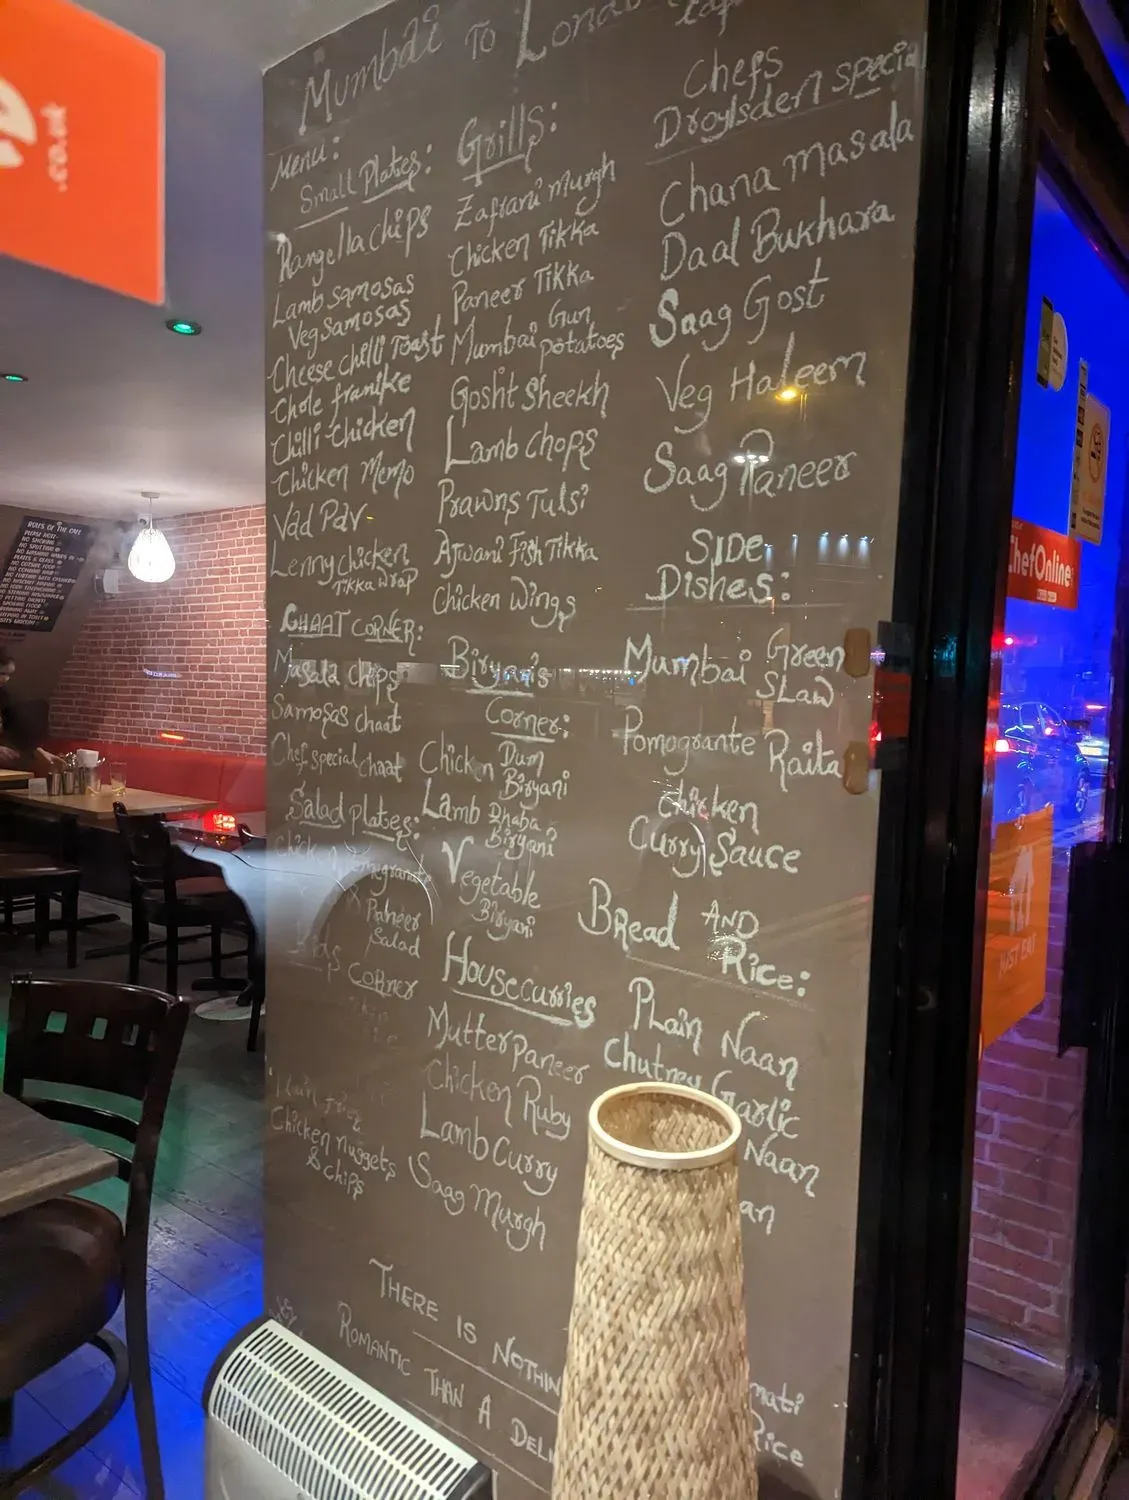 Mumbai To London
Menu:
Small Plates:
Rangella chips
Lamb samosas
Veg samosas
Cheese chilli Toast
Chole frankie
Chilli Chicken
Chicken Memo
Vad Pav
Lenny chicken
Tikka wrap
CHAAT CORNER:
Masala chips
Samosas chaat
Chef special chaat
Salad plates:
Paneer
Salad
CORNER
Chicken nuggets
& chips
Grills:
Zafrani Murgh
Chicken Tikka
Paneer Tikka
Mumbai Gun
potatoes
Gosht Sheekh
Lamb Chops
Prawns Tulsi
Ajwani Fish Tikka
Chicken Wings
Biryani's
Corner:
Chicken Dum
Biryani
Lamb Dhaba
Biryani
Vegetable
Biryani
Housecurries
Mutter paneer
Chicken Ruby
Lamb Curry
Saag Murgh
Chefs
Droylsden special
Chana masala
Daal Bukhara
Saag Gost
Veg Haleem
Saag Paneer
SIDE
Dishes:
Mumbai Green
SLaw
Pomogrante Raita
chicken
Curry Sauce
Bread AND
Rice:
Plain Naan
Chutney Garlic
Naan
an
mati
Rice
THERE IS NOTHIN
ROMANTIC THAN A DELI
RULES OF THE CAFE
PLEASE NOTE:
NO SMOKING
.co.uk
ChefOnline
JUST EAT